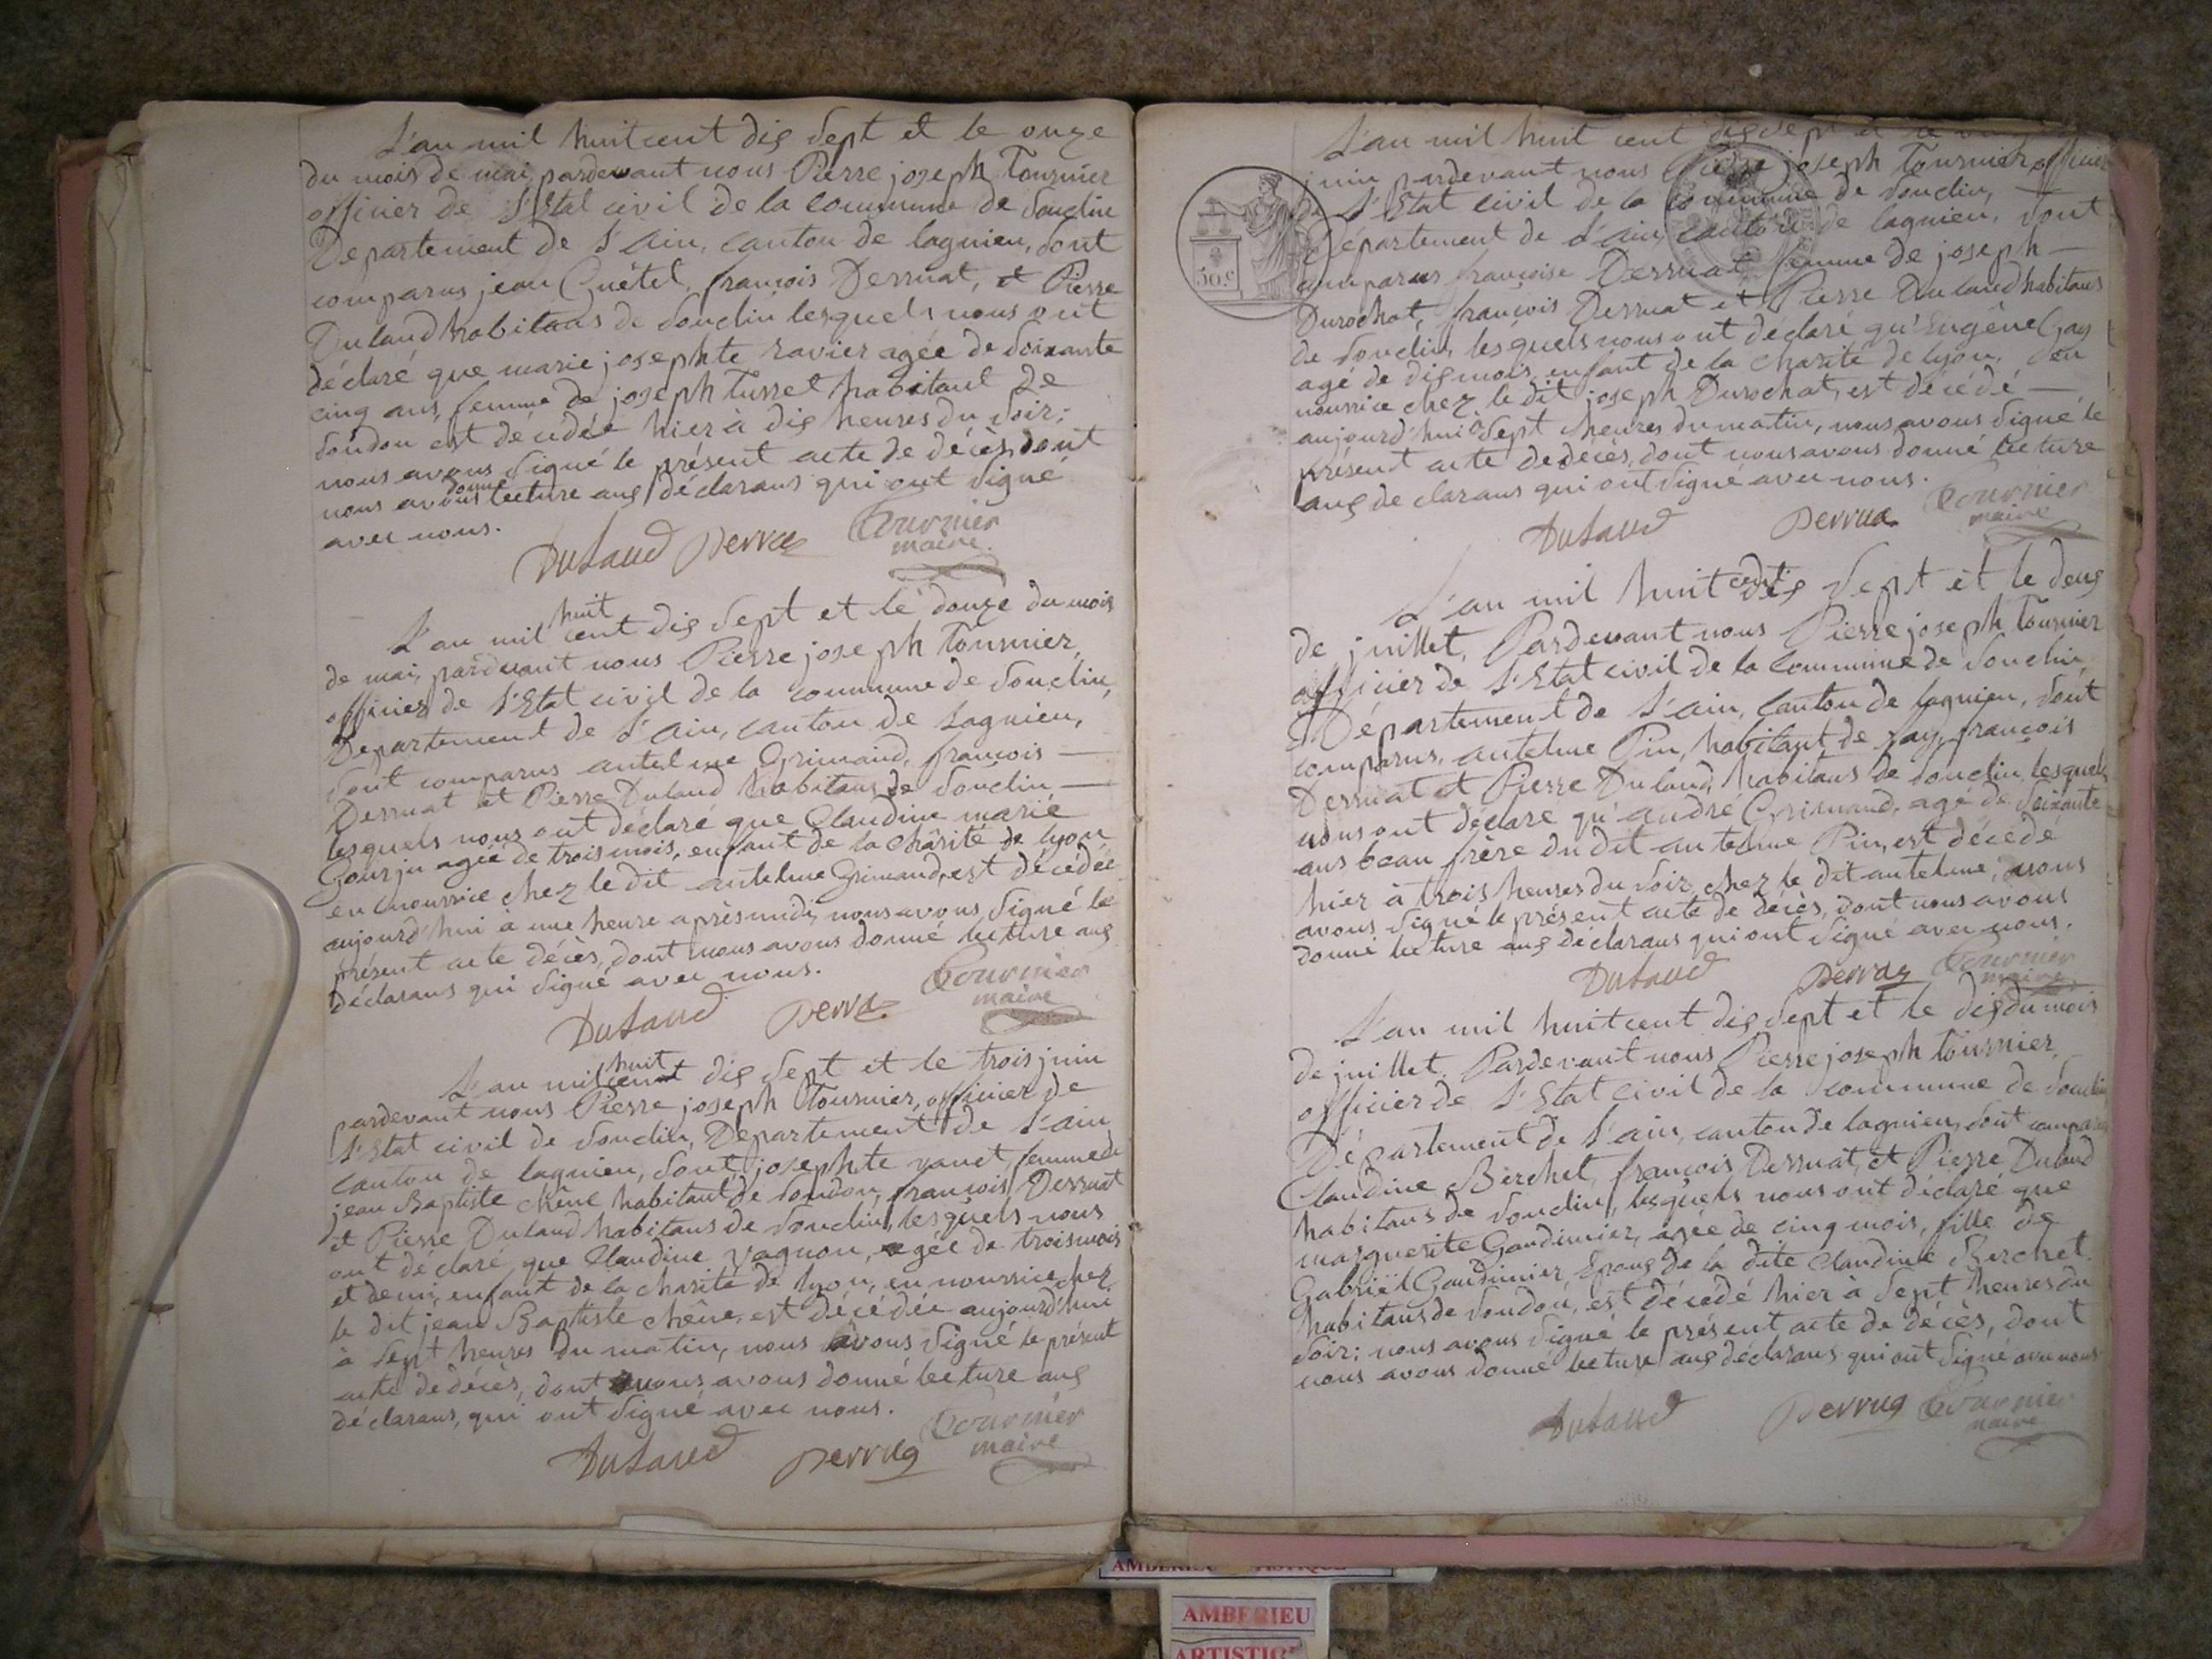 L'an mil huit cent dix sept et le onze
du mois de mai, pardevant nous Pierre joseph Tournier
officier de l'Etat civil de la commune de Souclin
Departement de l'ain, canton de lagnieu, sont
comparus jean Quétel, françois Derruat, et Pierre
Dulaud habitans de Souclin lesquels nous ont
déclaré que marie josephte ravier agée de Soixante
cinq ans, femme de joseph Turret habitant de
Soudon est décédée hier à dix heures du Soir;
nous avons Signé le présent acte de décès, dont
nous avons donné lecture aux déclarans qui ont Signé
avec nous.
Dulaud Derrua Tournier
maire
L'an mil huit cent dix Sept et le douze du mois
de mai, pardevant nous Pierre joseph Tournier,
officier de l'Etat civil de la commune de Souclin,
Departement de l'ain, canton de Lagnieu,
Sont comparus antelme Grimand, françois
Derruat et Pierre Dulaud habitans de Souclin
lesquels nous ont déclaré que Claudine marie
Gourju agée de trois mois, enfant de la charité de lyon
en nourrice chez le dit antelme Grimand, est décédée
aujourd'hui à une heure après midi, nous avons Signé le
présent acte décès, dont nous avons donné lecture aux
déclarans qui Signé avec nous.
Dulaud Derrua Tournier
maire
L'an mil huit cent dix Sept et le trois juin
pardevant nous Pierre joseph Tournier, officier de
l'Etat civil de Souclin, Departement de l'ain
canton de lagnieu, Sont josephte vanet, femme de
jean Baptiste chêne habitant de Soudon, françois Derruat
et Pierre Dulaud habitans de Souclin, lesquels nous
ont déclaré que Claudine vagnon, agée de trois mois
et demi, enfant de la charité de lyon, en nourrice chez
le dit jean Baptiste chêne, est décédée aujourd'hui
à Sept heures du matin, nous avons Signé le présent
acte de décès, dont nous avons donné lecture aux
déclarans, qui ont Signé avec nous.
Dulaud Derrua Tournier
maire
L'an mil huit cent dix Sept et le
juin pardevant nous Pierre joseph Tournier officier
de l'Etat civil de la commune de Souclin,
Département de l'ain, canton de lagnieu, Sont
comparus françoise Derruat femme de joseph
Durochat, françois Derruat et Pierre Dulaud habitans
de Souclin, lesquels nous ont déclaré qu'Eugène Gay
agé de dix mois enfant de la charité de lyon, en
nourrice chez le dit joseph Durochat, est décédé
aujourd'hui à Sept heures du matin, nous avons Signé le
présent acte de décès, dont nous avons donné lecture
aux declarans qui ont Signé avec nous.
50.c
Dulaud Derrua Tournier
maire
L'an mil huit cent dix Sept et le deux
de juillet, Pardevant nous Pierre joseph Tournier
officier de l'Etat civil de la commune de Souclin,
Département de l'ain, canton de lagnieu, Sont
comparus, antelme Pin, habitant de ray, françois
Derruat et Pierre Dulaud, habitans de Souclin, lesquels
nous ont déclaré qu'andré Grimand, agé de Soixante
ans beau frère du dit antelme Pin, est décédé
hier à trois heures du Soir chez le dit antelme, nous
avons Signé le présent acte de décès, dont nous avons
donné lecture aux déclarans qui ont Signé avec nous.
Dulaud Derrua Tournier
maire
L'an mil huit cent dix Sept et le dix du mois
de juillet. Pardevant nous Pierre joseph Tournier,
officier de l'Etat civil de la commune de Souclin
Département de l'ain, canton de lagnieu, Sont comparus
Claudine Berchet, françois Derruat, et Pierre Dulaud
habitans de Souclin, lesquels nous ont déclaré que
marguerite Gaudinier, agée de cinq mois, fille de
Gabriël Gaudinier, Epoux de la dite Claudine Berchet
habitans de Soudon, est décédé hier à Sept heures du
Soir: nous avons Signé le présent acte de décès, dont
nous avons donné lecture aux déclarans qui ont Signé avec nous
Dulaud Derrua Tournier
maire
AMBERIEU
AMBERIEU